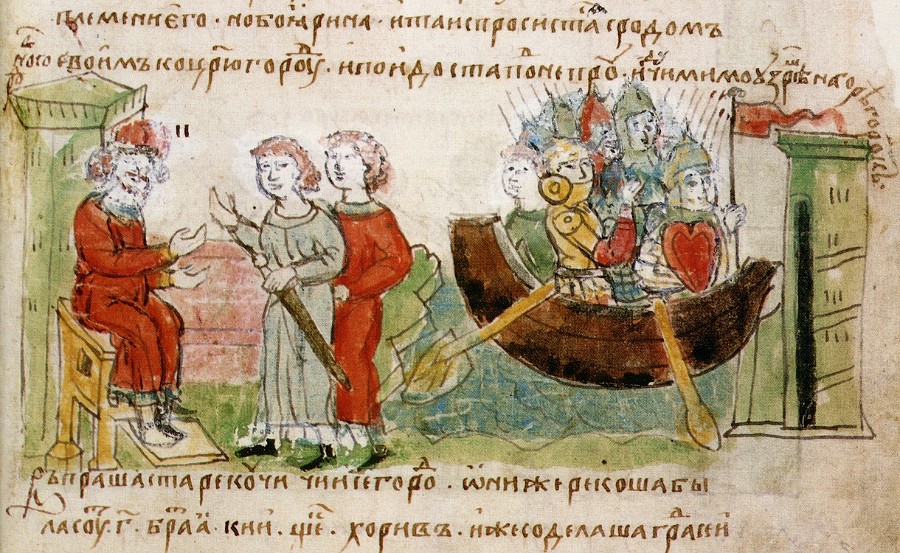 племени его · но боꙗрина · и та испросиста с родомъ
своимъ ко црюгорⷪ҇дꙋ · и поидоста по непрꙋ · идꙋчи мимо ꙋзрѣⷲ на горѣ городокъ
въпрашаста рекꙋчи чии се гороⷣ · ѡни же рекоша бы
ла сꙋⷮ г҃ · браⷮꙗ · кии · щеⷦ · хоривъ · иже соделаша граⷣ сии